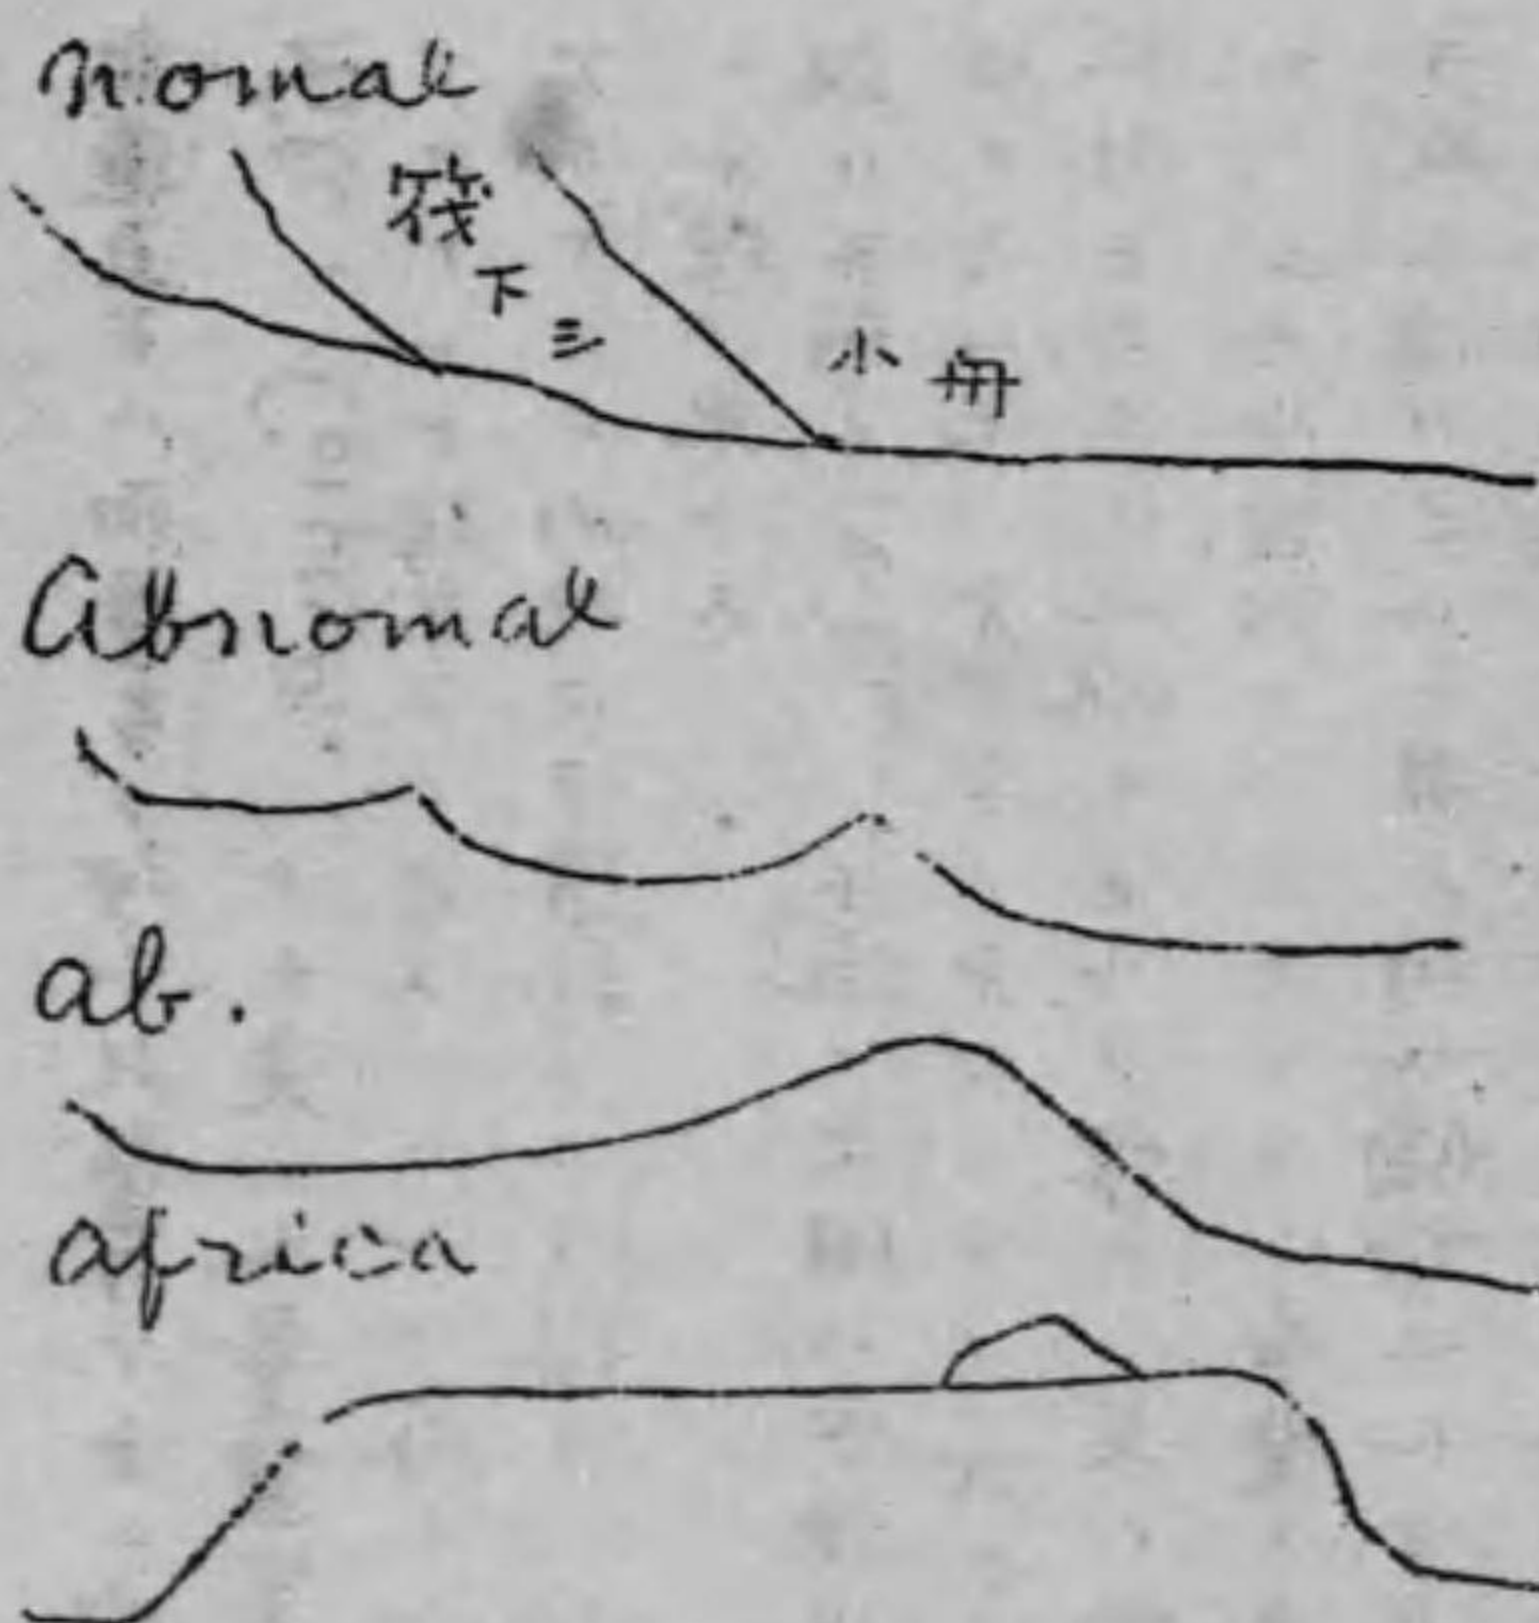 nomal
筏下シ
小舟
Abnomal
ab.
africa